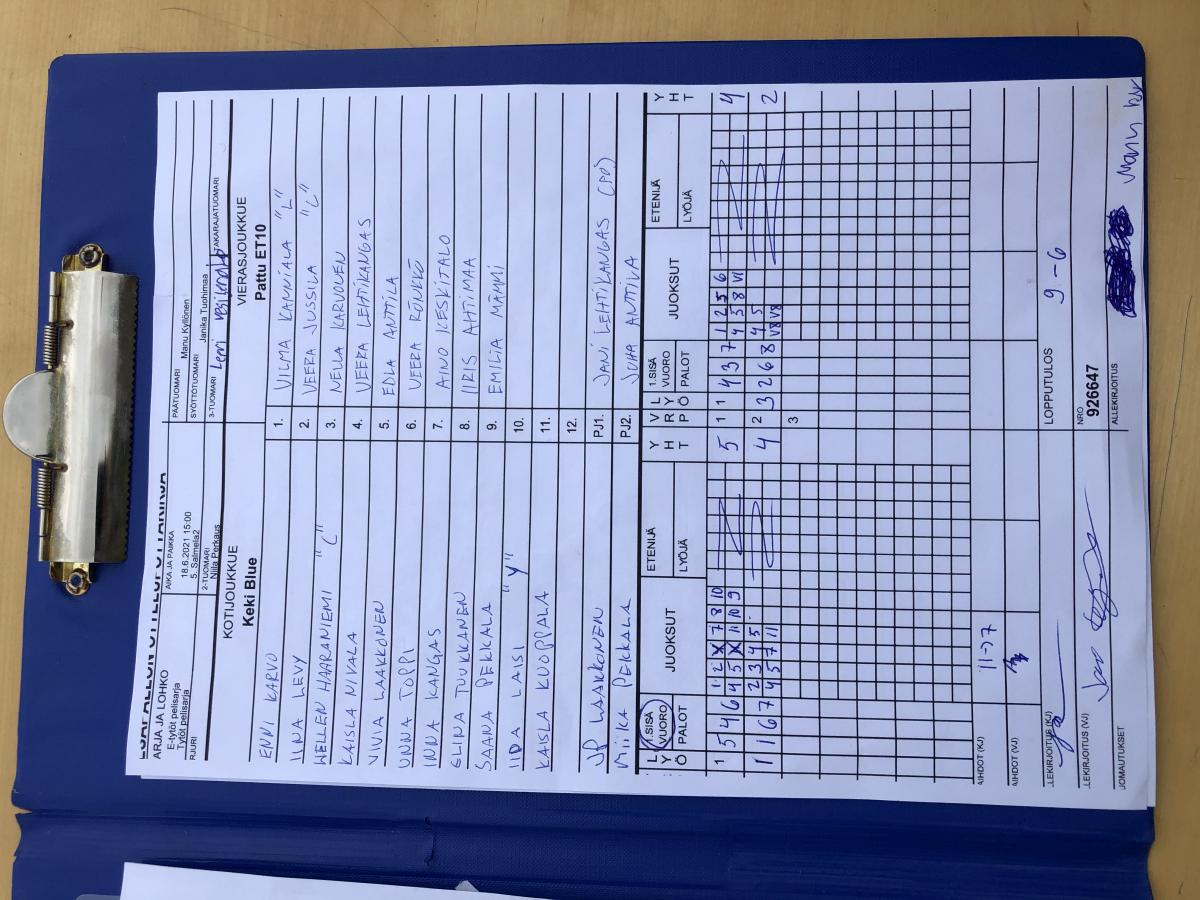 ARJA JA LOHKO
E-tytöt pelisarja
Tytöt pelisarja
RJURI
AIKA JA PAIKKA
18.6.2021 15:00
5. Salmela2
2-TUOMARI
Niila Perkaus
PÄÄTUOMARI Manu Kyllönen
SYÖTTÖTUOMARI Janika Tuohimaa
3-TUOMARI
TAKARAJATUOMARI
KOTIJOUKKUE
Keki Blue
VIERASJOUKKUE
Pattu ET10
ENNI KARVO 1. VILMA KANNIALA "L"
IINA LEVY 2. VEERA JUSSILA "C"
HELLEN HAARANIEMI "C" 3. NELLA KARVONEN
KAISLA NIVALA 4. VEERA LEHTIKANGAS
VIVIA LAAKKONEN 5. EDLA ANTTILA
UNNA TOPPI 6. VEERA RÖNKKÖ
INNA KANGAS 7. AINO KESKITALO
ELINA TUUKKANEN 8. IIRIS AHTIMAA
SAANA PEKKALA 9. EMILIA MÄMMI
IIDA LAISI "Y" 10.
KAISLA KUOPPALA 11.
12.
JP LAAKKONEN PJ1. JANI LEHTIKANGAS (PÖ.)
MIIKA PEKKALA PJ2. JUHA ANTTILA
LYÖ 1.SISÄ VUORO PALOT JUOKSUT ETENIJÄ LYÖJÄ YHT VRP LYÖ 1.SISÄ VUORO PALOT JUOKSUT ETENIJÄ LYÖJÄ YHT
1 5 4 6 1 2 X 7 8 10 5 1 1 4 3 7 1 2 5 6 4
4 5 X 11 10 9 4 5 8 VI
1 1 6 7 2 3 4 5 4 2 3 2 6 8 4 5 2
4 5 7 11 V8 V8
3
AIHDOT (KJ) 11->7
AIHDOT (VJ)
LOPPUTULOS 9-6
LEKIRJOITUS (KJ)
LEKIRJOITUS (VJ)
NRO
926647
UOMAUTUKSET
ALLEKIRJOITUS